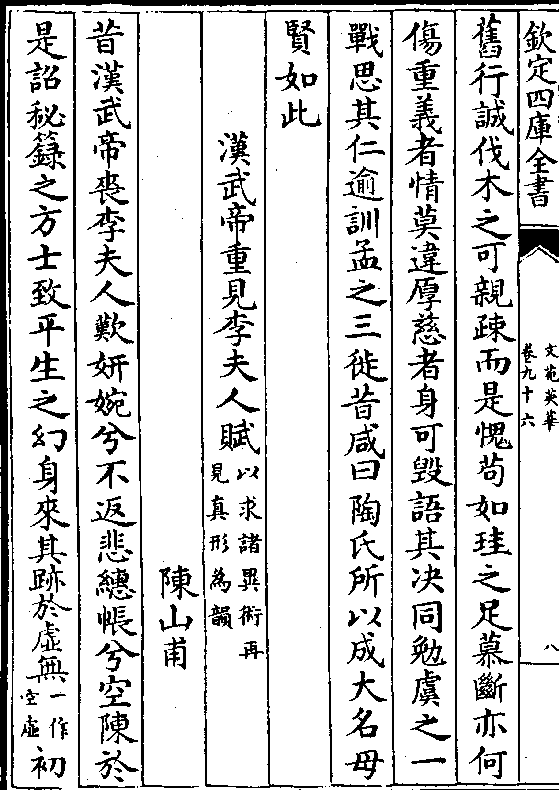 欽定四庫全書
文苑英華
卷九十六
八
舊行誠伐木之可親疎而是愧苟如珪之足慕斷亦何
傷重義者情莫違厚慈者身可毁語其决同勉虞之一
戰思其仁逾訓孟之三徙昔咸曰陶氏所以成大名母
賢如此
漢武帝重見李夫人賦以求諸異術再
見真形為韻
陳山甫
昔漢武帝喪李夫人歎妍婉兮不返悲繐帳兮空陳於
是詔秘籙之方士致平生之幻身來其跡於虛無一作
空虛初